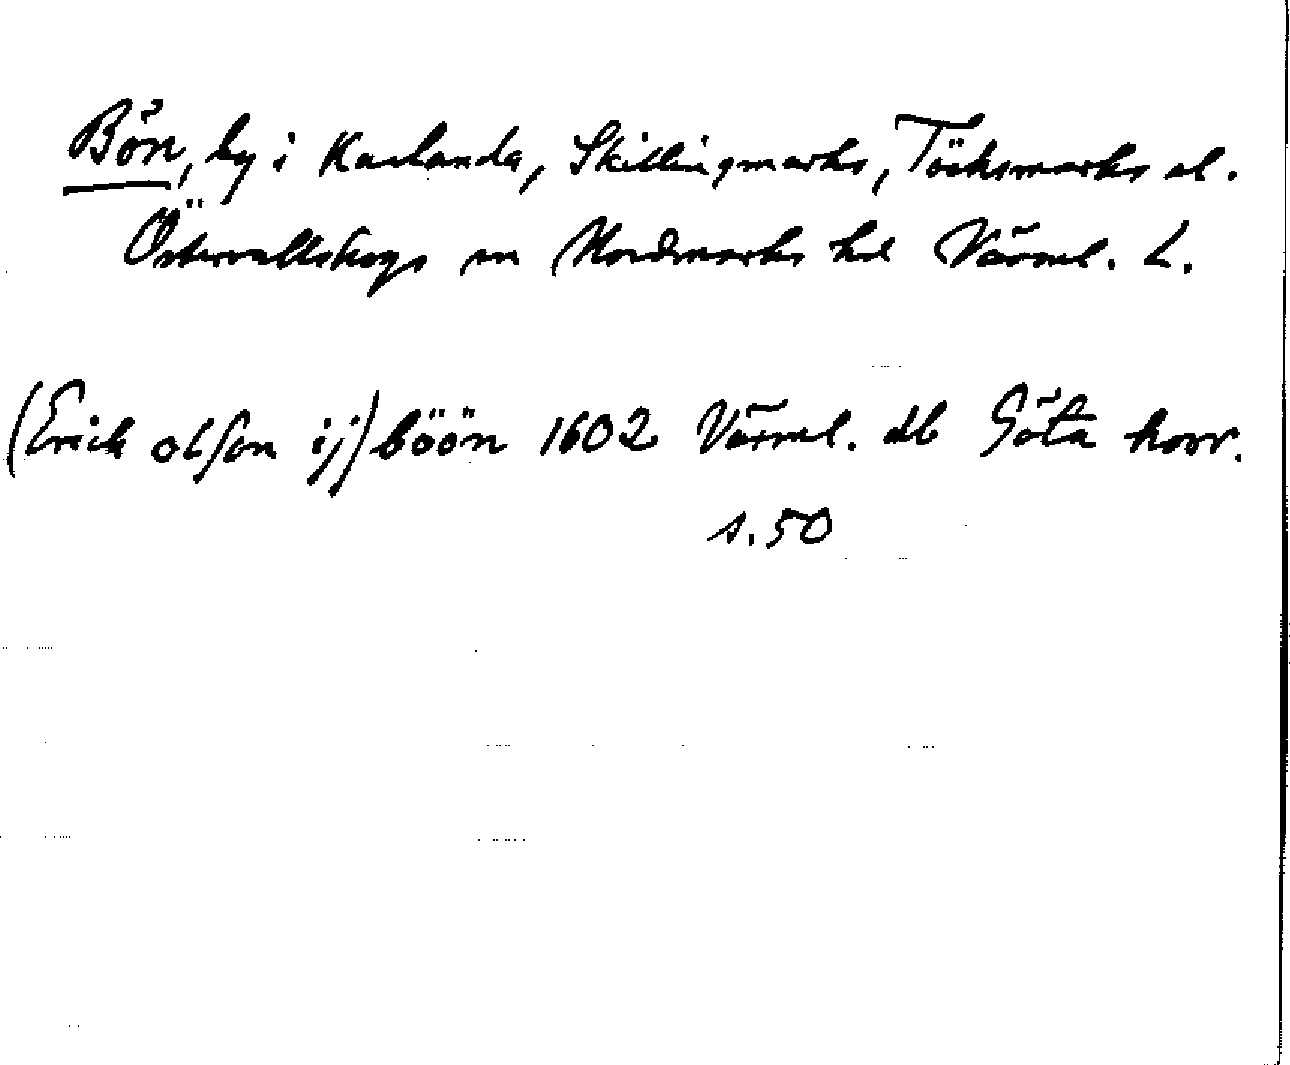 Bön, by i Karlanda, Skillingmarks, Töcksmarks el.
Östervallskogs sn Nordmarks hd Värml. L.
(Erich olson ij) böön 1602 Värml. db Göta hovr.
s. 50